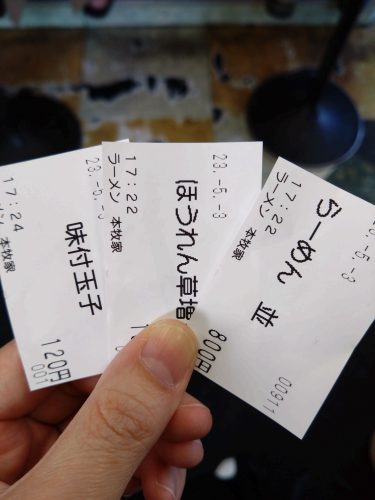 23.-5.-3
17:24
味付玉子
120円
001
23.-5.-3
17:22
ラーメン 本牧家
ほうれん草増
-5.-3
17:22
ラーメン 本牧家
らーめん 並
800円
00911